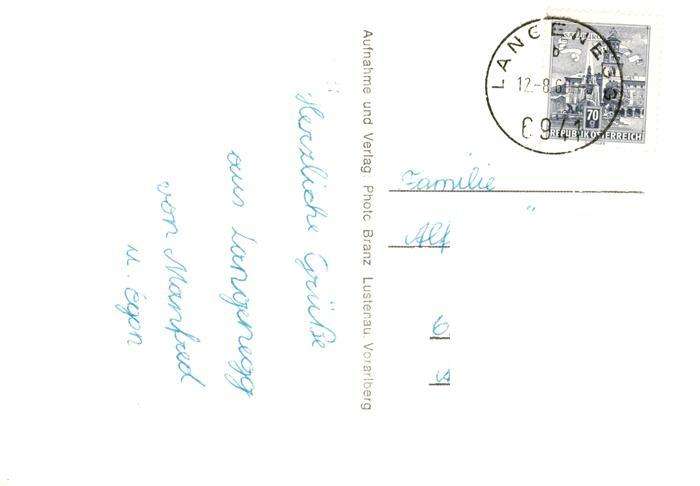 Herzliche Grüße
aus Langenegg
von Manfred
u. Egon
Aufnahme und Verlag Photo Branz Lustenau, Vorarlberg
LANGENEGG
b
12.-8.6
6941
70
REPUBLIK ÖSTERREICH
Familie
Alf
6